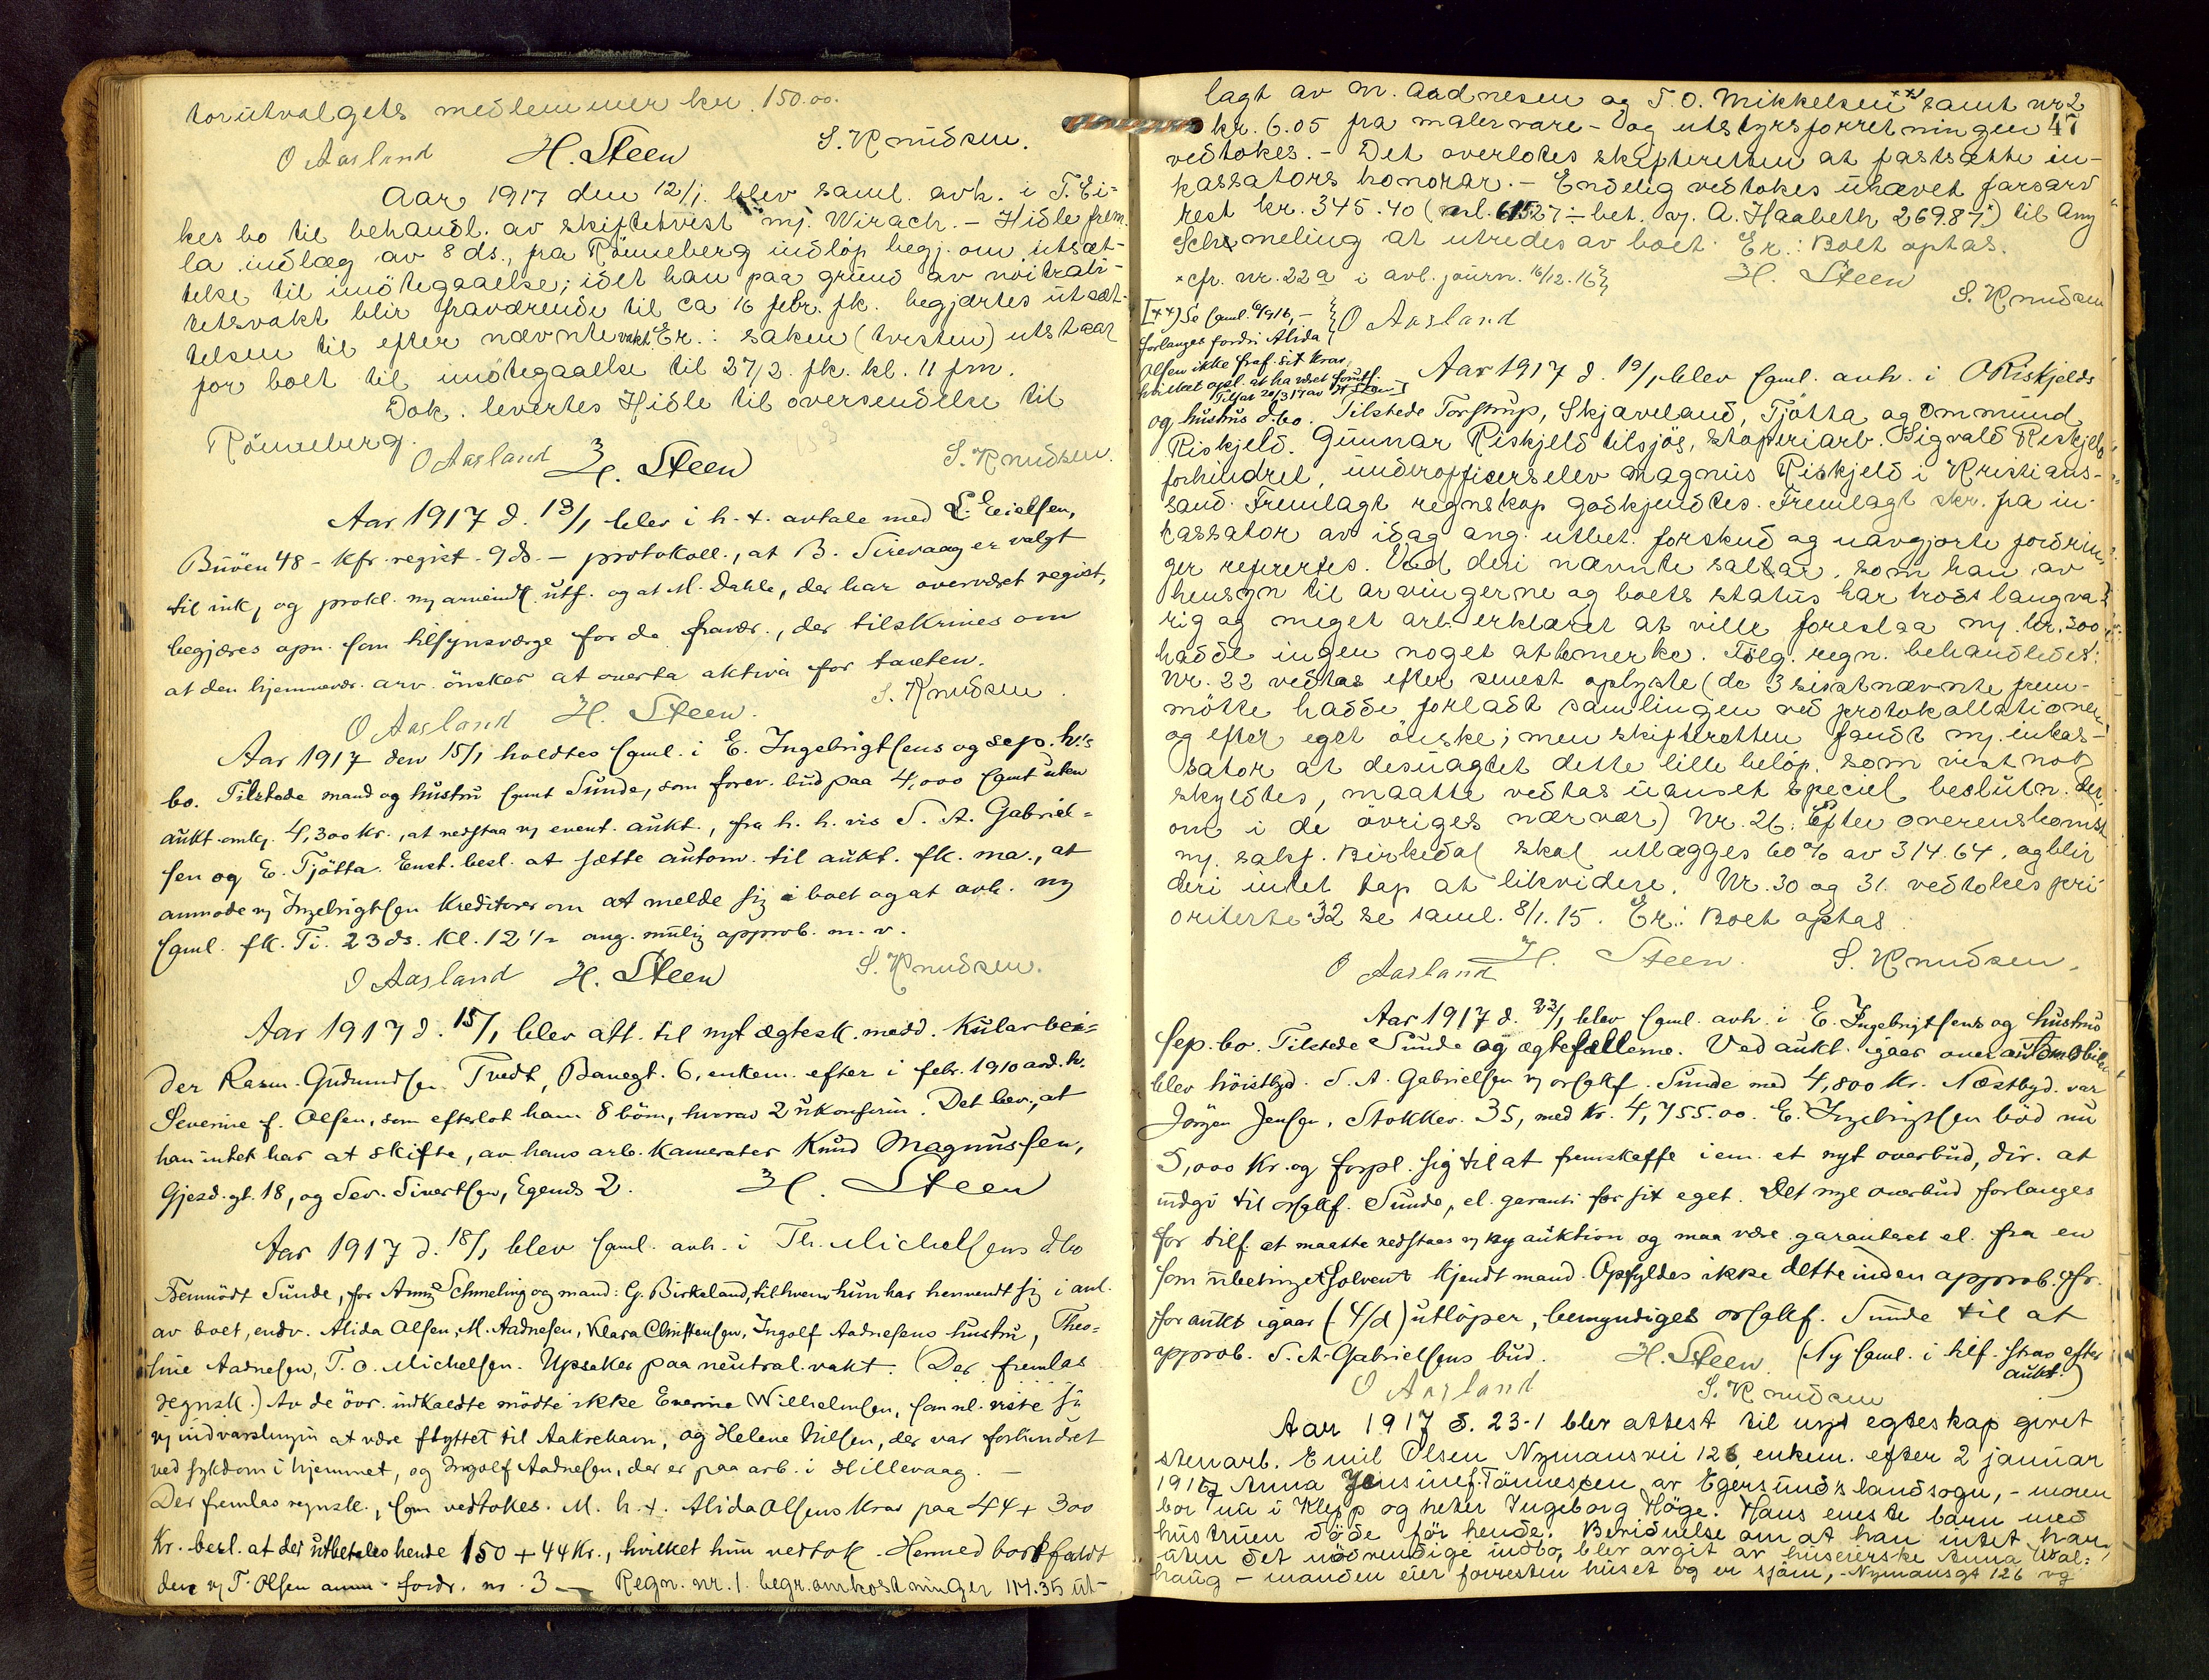 torutvalgets medlemmer kr. 150.00.
O Aasland H. Steen S. Knudsen.
Aar 1917 den 12/1. blev saml. avh. i T. Ei-
kes bo til behandl. av skiftetvist mj. Wirach. - Hidle frem
la indlæg av 8 ds., fra Rönneberg indlöp begj. om utsæt-
telse til imötegaaelse; idet han paa grund av nöitrali-
tetsvakt blir fraværende til ca 16 febr. fk. begjærtes utsæt-
telsen til efter nævnte vakt. Er.: saken (tvisten) utstaar
for boet til imötegaaelse til 27/2. fk. kl. 11 fm.
Dok. levertes Hidle til oversendelse til
Rönneberg. O Aasland H. Steen S. Knudsen.
Aar 1917 d. 13/1 blev i h. t. avtale med L. Eielsen,
Buöen 48 - kfr. regist. 9 ds. - protokoll., at B. Sirevaag er valgt
til ink, og prokl. mj arveindk. utf. og at M. Dahle, der har overværet regist,
begjæres opn. som tilsynsværge for de fravær., der tilskrives om
at den hjemmeværr. arv. önsker at overta aktiva for taxten.
O Aasland H. Steen. S. Knudsen.
Aar 1917 den 15/1 holdtes saml. i E. Ingebrigtsens og sep. h.'s
bo. Tilstede mand og hustru samt Sunde, som forev. bud paa 4,000 samt uten
aukt. omkr. 4,300 kr., at nedstaa vj event. aukt., fra h. h. vis S. A. Gabriel-
sen og E. Tjötta. Enst. besl. at sætte autom. til aukt. fk. ma., at
anmode vj Ingebrigtsen Kreditorer om at melde sig i boet og at avh. ny
saml. fk. Ti. 23 ds. Kl. 12 1/2 ang. mulig approb. m. v.
O Aasland H. Steen S. Knudsen.
Aar 1917 d. 15/1 blev att. til nyt ægtesk. medd. Kularbei-
der Rasm. Gudmundsen Tvedt, Banegt. 6, enkem. efter i febr. 1910 avd. h.
Severine f. Olsen, som efterlot ham 8 börn, hvorav 2 ukonfirm. Det bev., at
han intet har at skifte, av hans arb. kamerater Knud Magnussen,
Gjesd. gt. 18, og Sev. Sivertsen, Egends 2. H. Steen
Aar 1917 d. 18/1 blev saml. avh. i Th. Michelsens d.bo
Fremmödt Sunde, for Anny Schmeling og mand: G. Birkeland, til hvem hun har henvendt sig i anl.
av boet, endv. Alida Olsen, M. Aadnesen, Klara Christensen, Ingolf Aadnesens hustru, Theo-
line Aadnesen, T. O. Michelsen. Upsaker paa neutral. vakt. (Der fremlas
regnsk.) Av de övr. indkaldte mödte ikke Everine Wilhelmsen, som nl. viste sig
vj indvarslingen at være flyttet til Aakrehavn, og Helene Nilsen, der var forhindret
ved sykdom i hjemmet, og Ingolf Aadnesen, der er paa arb. i Hillevaag. -
Der fremlas regnsk., som vedtokes. M. h. t. Alida Olsens krav paa 44 + 300
Kr. besl. at der utbetales hende 150 + 44 Kr., hvilket hun vedtok. Hermed bortfaldt
den vj T. Olsen anm. fordr. nr. 3 - Regn. nr. 1. begr. omkostninger 114.35 ut-
lagt av M. Aadnesen og T. O. Mikkelsen xx) samt nr 2
kr. 6.05 fra malervare- og utstyrsforretningen 47
vedtokes. - Det overlotes skifteretten at fastsætte in-
kassators honorar. - Endelig vedtokes uhævet farsarv
rest kr. 345.40 (nl. 615.27 ÷ bet. vj. A. Haabeth 269.87 x) til Any
Schmeling at utredes av boet. Er.: Boet optas.
x cfr. nr. 22a i avl. journ. 16/12. 16} H. Steen S. Knudsen
[xx) Se saml. 6/9 16, - } O Aasland
forlanges fordi Alida
Olsen ikke fraf. sit krav,
hvilket opl. at ha været foruts.
Tilsat 20/3 17 av H Steen]
Aar 1917 d. 19/1 blev saml. avh. i O Riskjelds
og hustrus d.bo. Tilstede Torstrup, Skjæveland, Tjötta og Ommund
Riskjeld. Gunnar Riskjeld tilsjös, stoperiarb. Sigvald Riskjeld
forhindret, underofficerselev Magnus Riskjeld i Kristians-
sand. Fremlagt regnskap godkjendtes. Fremlagt skr. fra in-
kassator av idag ang. utbet. forskud og uavgjorte fordrin-
ger refrertes. Ved deri nævnte salær, som han av
hensyn til arvingerne og boets status har trods langva-
rig og meget arb. erklæret at ville foreslaa mj. kr. 300
hadde ingen noget at bemerke. Fölg. regn. behandledes:
Nr. 22 vedtas efter senest oplyste (de 3 sisstnævnte frem-
mötte hadde forladt samlingen ved protokollationen
og efter eget önske; men skifteretten fandt mj. inkas-
sator at desuagtet dette lille belöp, som vistnok
skyldtes, maatte vedtas uanset speciel beslutn. der-
om i de övriges nærvær) Nr. 26: Efter overenskomst
mj. sakf. Birkedal skal utlægges 60% av 314.64, og blir
deri intet tap at likvidere. Nr. 30 og 31 vedtokes pri-
oriterte. 32 se saml. 8/1. 15. Er.: Boet optas.
O Aasland H. Steen. S. Knudsen.
Aar 1917 d. 23/1 blev saml. avh. i E. Ingebrigtsens og hustrus
sep. bo. Tilstede Sunde og ægtefællerne. Ved aukt. igaar over automobilen
blev höistbyd. S. A. Gabrielsen vj orsakf. Sunde med 4,800 Kr. Næstbyd. var
Jörgen Jensen, Stokkev. 35, med Kr. 4,755.00. E. Ingebrigtsen böd nu
5,000 Kr. og forpl. sig til at fremskaffe i em. et nyt overbud, dir. at
indgi til orsakf. Sunde, el. garanti for sit eget. Det nye overbud forlanges
for tilf. at maatte nedstaas vj ny auktion og maa være garantert el. fra en
som ubetinget solvent kjendt mand. Opfyldes ikke dette inden approb. fr.
for aukt igaar (4/d) utlöper, bemyndiges orsakf. Sunde til at
approb. S. A. Gabrielsens bud. H. Steen (Ny saml. i tilf. strax efter
aukt.)
O Aasland S. Knudsen
Aar 1917 d. 23-1 blev attest til nyt egteskap givet
stenarb. Emil Olsen Nymansvei 126, enkem. efter 2 januar
1917 Anna Jensine f. Tönnessen av Egersunds landsogn, - moren
bor nu i Klepp og heter Ingeborg Höge. Hans eneste barn med
hustruen döde för hende. Bevidnelse om at han intet har,
uten det nödvendige indbo, blev avgit av huseierske Anna Wal-
haug - manden eier forresten huset og er sjöm, - Nymansgt 126 og